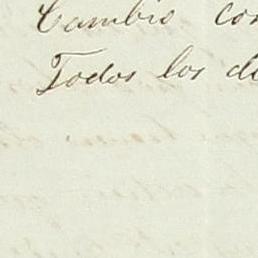 Cambio con
Todos los di